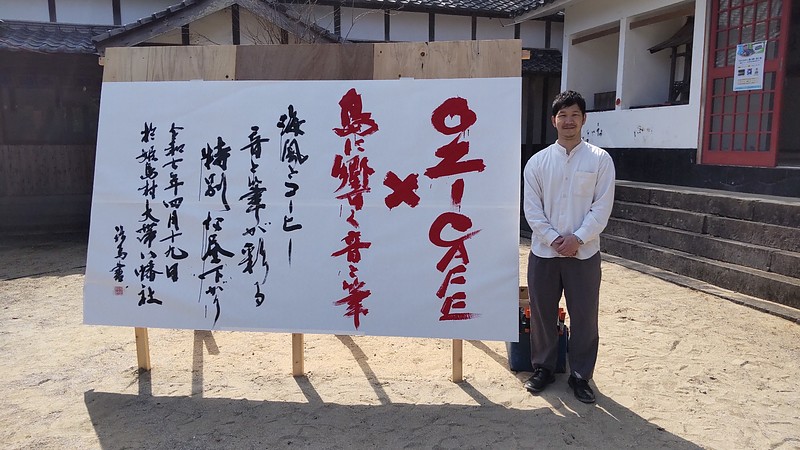 OZI-CAFE
×
島に響く音と筆
海風とコーヒー
音と筆が彩る
特別な昼下がり
令和七年四月十九日
於姫島村大帯八幡社
書